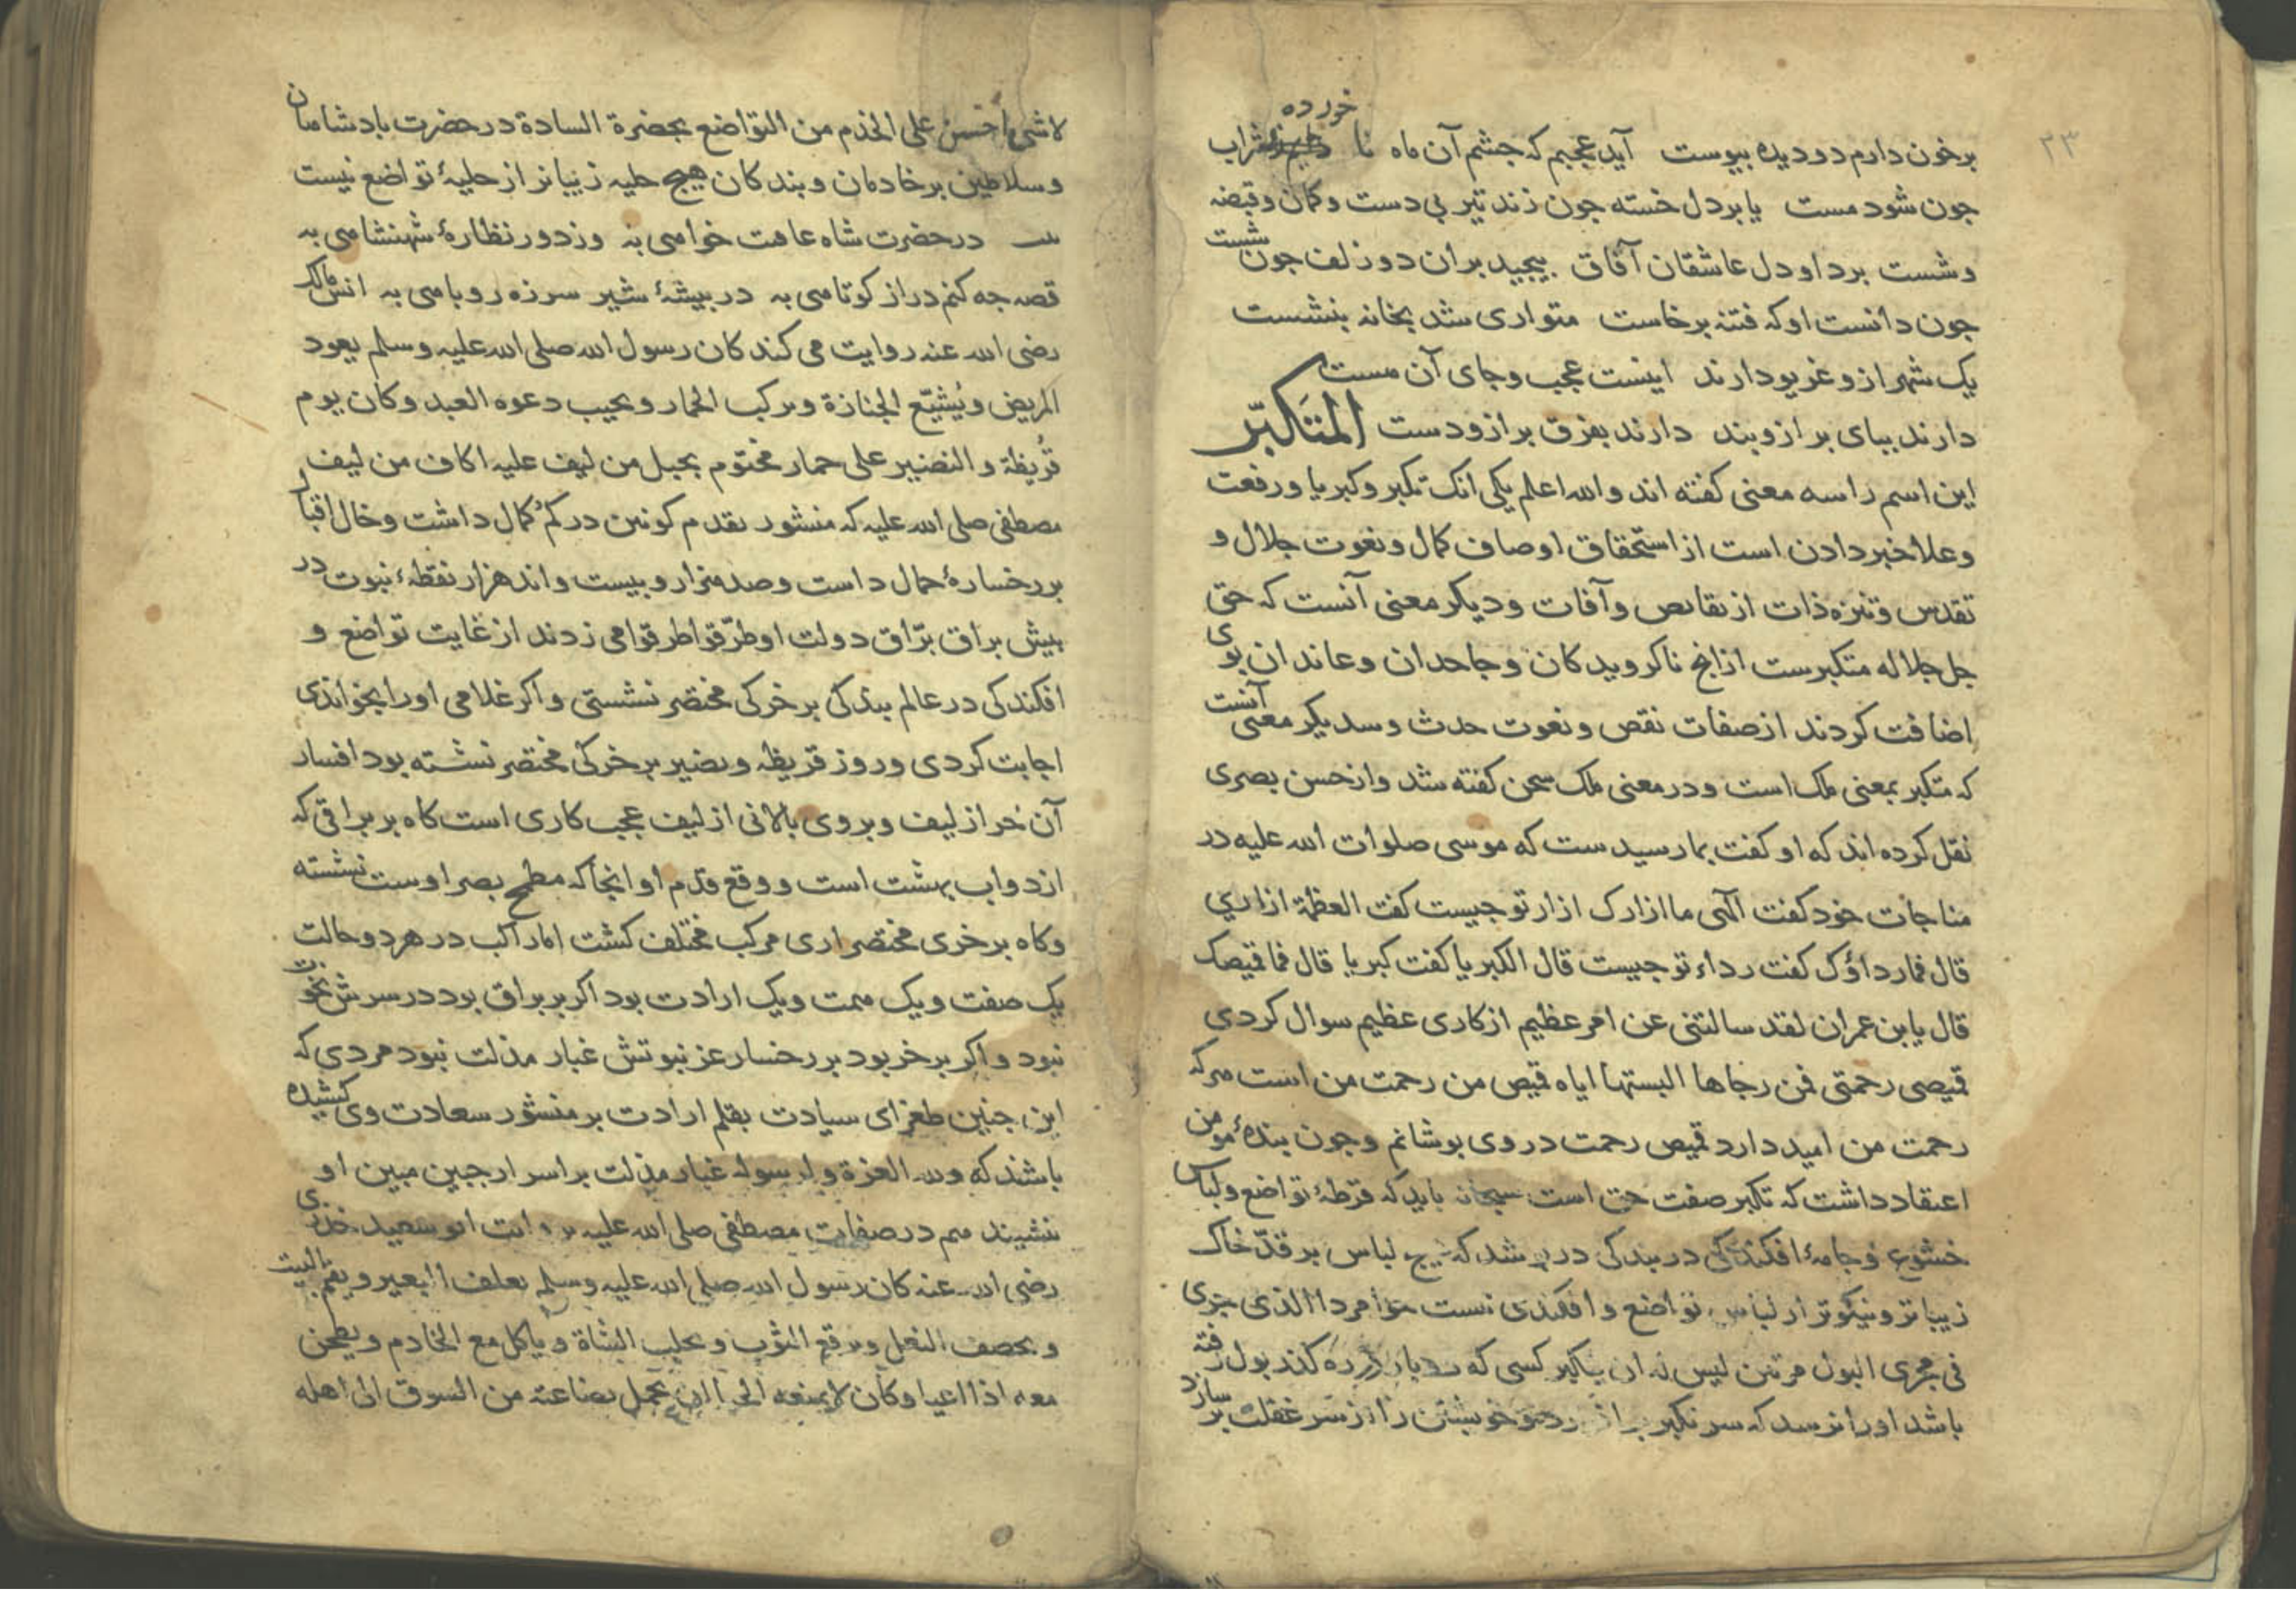 ۲۳
خورده
برخون دارم دو دیده پیوست آید عجبم که جشم آن ماه نا شراب
جون شود مست یا بر دل خسته جون زند تیر بی دست و کمان و قبضه
و شست برد او دل عاشقان آفاق بیجید بران دو زلف جون شست
جون دانست او که فتنه برخاست متواری شد بخانه بنشست
یک شهر ازو غریو دارند اینست عجب و جای آن هست
دارند ببای بر ازو بند دارند بفرق بر ازو دست المتکبّر
این اسم را سه معنی کفته اند والله اعلم یکی انک تکبر و کبریا و رفعت
و علا خبر دادن است از استحقاق اوصاف کمال و نعوت جلال و
تقدس و تنزه ذات از نقایص و آفات و دیکر معنی آنست که حق
جل جلاله متکبرست ازانج ناکرویدکان و جاحدان و عاندان بوی
اضافت کردند از صفات نقص و نعوت حدث و سدیکر معنی آنست
که متکبر بمعنی ملک است و در معنی ملک سخن کفته شد و از حسن بصری
نقل کرده اند که او کفت بما رسیدست که موسی صلوات الله علیه در
مناجات خود کفت الهی ما ازارک ازار تو جیست کفت العظمة ازاری
قال فما رداؤک کفت رداء تو جیست قال الکبریا کفت کبریا قال فما قمیصک
قال یا بن عمران لقد سالتنی عن امر عظیم از کاری عظیم سوال کردی
قمیصی رحمتی فمن رجاها البستها ایاه قمیص من رحمت من است هرکه
رحمت من امید دارد قمیص رحمت در وی بوشانم و جون بندهٔ مومن
اعتقاد داشت که تکبر صفت حق است سبحانه باید که قرطهٔ تواضع و لباس
خشوع و جامهٔ افکندکی در بندکی در بوشد که هیج لباس بر قدّ خاک
زیباتر و نیکوتر از لباس تواضع و افکندکی نیست هوا مردا الذی جری
فی مجری البول مرتین لیس له ان یتکبر کسی که دوبار در ره کذر بول رفته
باشد او را نرسد که سر تکبر بر خویشتن را از سر غفلت بر سازد
لا شیء احسن علی الخدم من التواضع بحضرة السادة در حضرت بادشاهان
و سلاطین بر خادمان و بندکان هیچ حلیه زیباتر از حلیهٔ تواضع نیست
در حضرت شاه عافت خواهی به وز دور نظارهٔ شهنشاهی به
قصه جه کنم دراز کوتاهی به در بیشهٔ شیر سرزه روباهی به انس مالک
رضی الله عنه روایت می کند کان رسول الله صلی الله علیه وسلم یعود
المریض و یُشیّع الجنازة و یرکب الحمار و یجیب دعوه العبد و کان یوم
قُریظة و النضیر علی حمار مختوم بحبل من لیف علیه اکاف من لیف
مصطفی صلی الله علیه که منشور تقدم کونین در کم کمال داشت و خال اقبال
بر رخسارهٔ جمال داست و صد هزار و بیست و اند هزار نقطهٔ نبوت در
بیش براق برّاق دولت او طرّقوا طرقوا می زدند از غایت تواضع و
افکندکی در عالم بندکی بر خرکی مختصر نشستی و اکر غلامی او را بخواندی
اجابت کردی و روز قریظه و نضیر بر خرکی مختصر نشسته بود افسار
آن خر از لیف و بر وی بالانی از لیف عجب کاری است کاه بر براقی که
از دواب بهشت است و وقع قدم او انجا که مطمح بصر اوست نشسته
و کاه بر خری مختصر اری مرکب مختلف کشت اما راکب در هر دو حالت
یک صفت و یک همت و یک ارادت بود اکر بر براق بود در سرش نخوت
نبود و اکر بر خر بود بر رخسار عز نبوتش غبار مذلت نبود مردی که
این جنین طغرای سیادت بقلم ارادت بر منشور سعادت وی کشیده
باشند که ولله العزة و لرسوله غبار مذلت بر اسرار جبین مبین او
ننشیند هم در صفات مصطفی صلی الله علیه روایت ابو سعید خدری
رضی الله عنه کان رسول الله صلی الله علیه وسلم یعلف البعیر و یقم البیت
و یخصف النعل و یرقع الثوب و یحلب الشاة و یاکل مع الخادم و یطحن
معه اذا اعیا و کان لا یمنعه الحیا ان یحمل بضاعته من السوق الی اهله